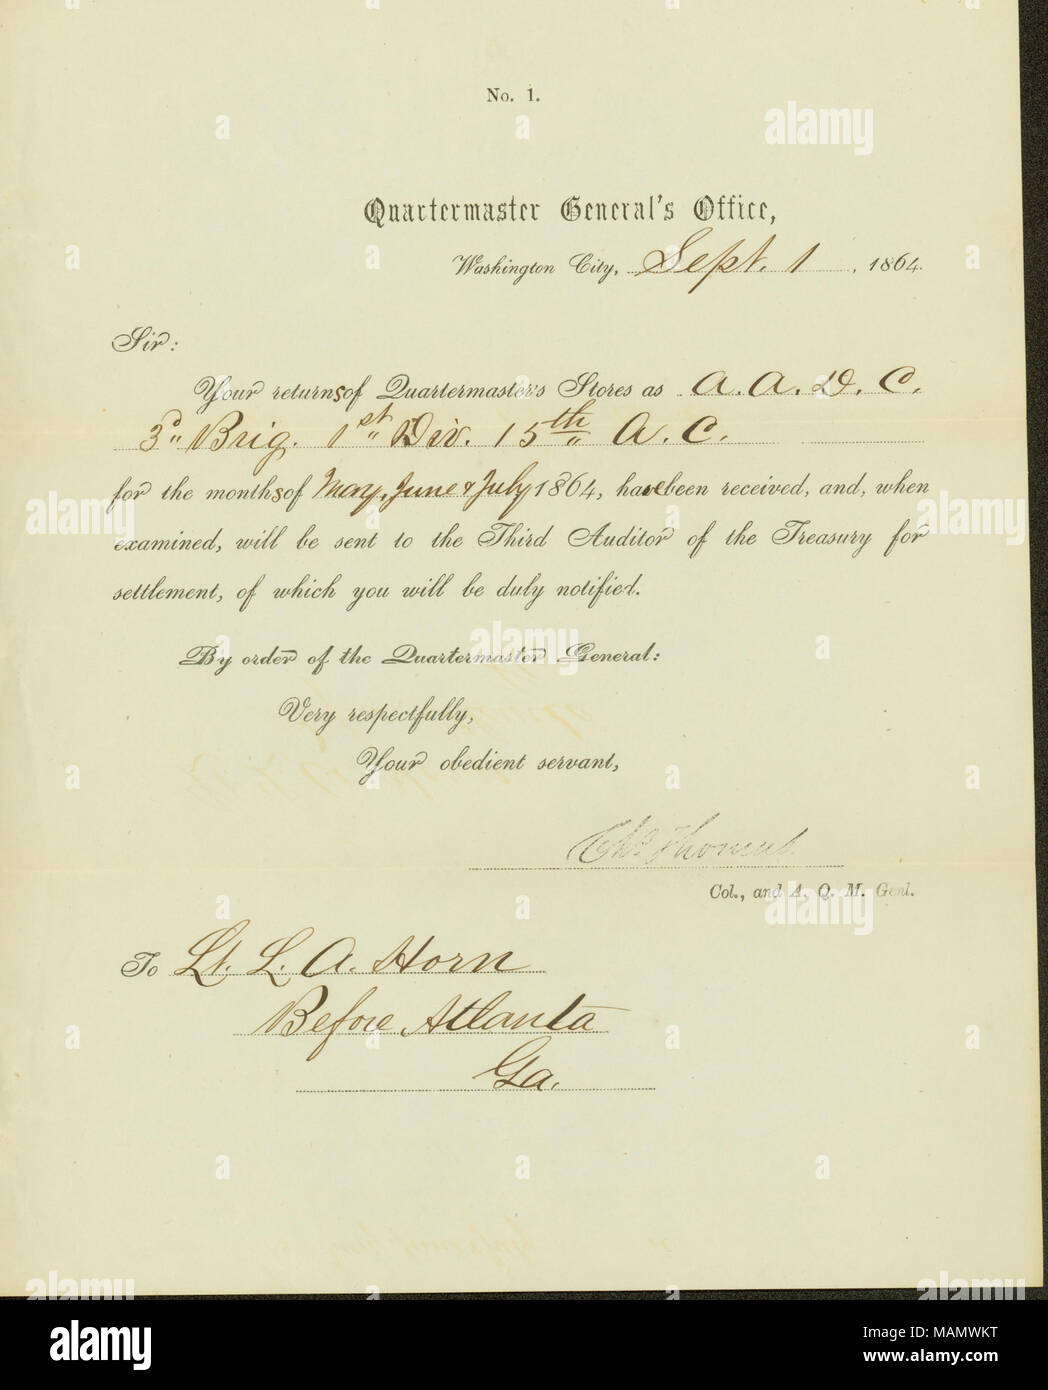 No. 1.
Quartermaster General's Office,
Washington City, Sept. 1, 1864.
Sir:
Your returns of Quartermaster's Stores as A. A. D. C.
3d Brig. 1st Div. 15th A. C.
for the months of May, June & July 1864, have been received, and, when
examined, will be sent to the Third Auditor of the Treasury for
settlement, of which you will be duly notified.
By order of the Quartermaster General:
Very respectfully,
Your obedient servant,
Chs Thomas.
Col., and A. Q. M. Genl.
To Lt. L. A. Horn
Before Atlanta
Ga.
alamy
Image ID: MAMWKT
www.alamy.com